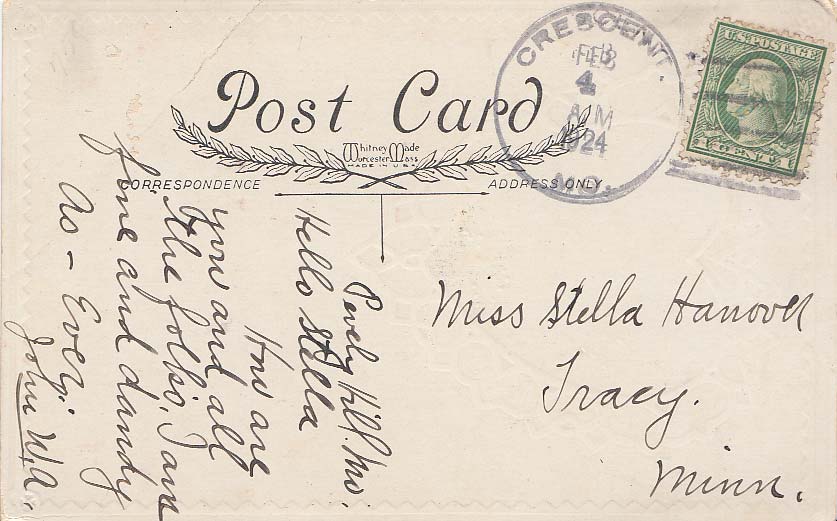 Post Card
Whitney Made
Worcester Mass
MADE IN U.S.A.
CORRESPONDENCE
ADDRESS ONLY
CRESCENT.
FEB
4
AM
1924
MO.
U.S. POSTAGE
Pevely Hill. Mo.
Hello Stella
How are
you and all
the folks. I am
fine and dandy
As - Ever.
John W.A.
Miss Stella Hanover
Tracy.
Minn.